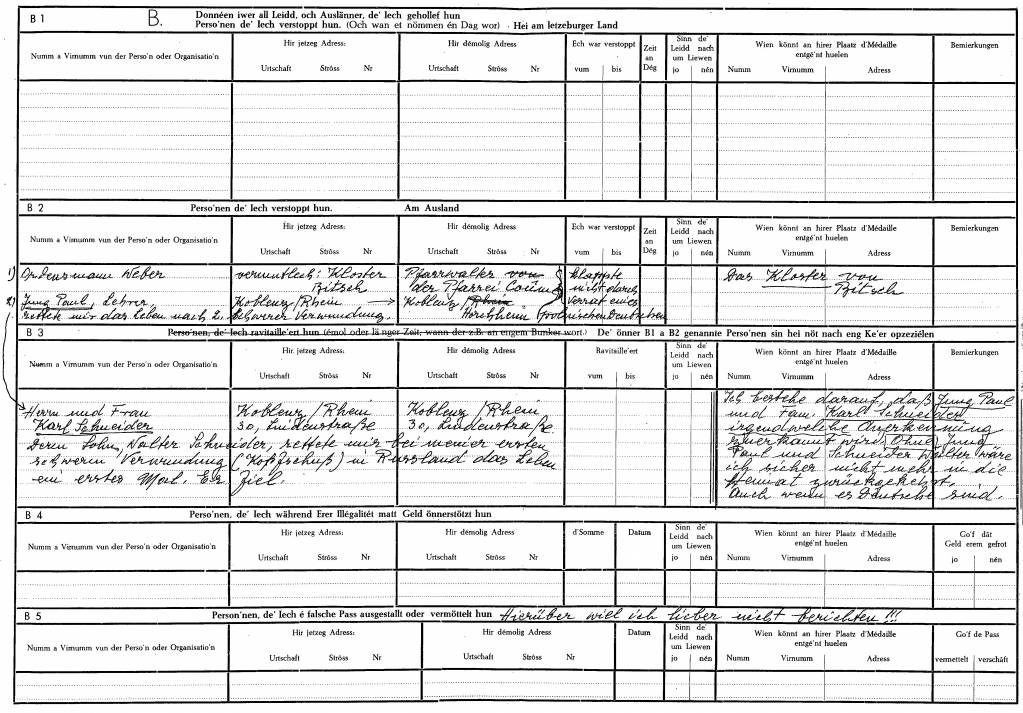 B 1
B.
Donnéen iwer all Leidd, och Auslänner, de' Iech gehollef hun
Perso'nen de' Iech verstoppt hun. (Och wan et nömmen én Dag wor) - Hei am letzeburger Land
Numm a Virnumm vun der Perso'n oder Organisatio'n
Hir jetzeg Adress:
Urtschaft Ströss Nr
Hir démolig Adress
Urtschaft Ströss Nr
Ech war verstoppt
vum bis
Zeit
an
Dég
Sinn de'
Leidd nach
um Liewen
jo nén
Wien könnt an hirer Plaatz d'Médaille
entgé'nt huelen
Numm Virnumm Adress
Bemierkungen
B 2
Perso'nen de' Iech verstoppt hun. Am Ausland
Numm a Virnumm vun der Perso'n oder Organisatio'n
Hir jetzeg Adress:
Urtschaft Ströss Nr
Hir démolig Adress
Urtschaft Ströss Nr
Ech war verstoppt
vum bis
Zeit
an
Dég
Sinn de'
Leidd nach
um Liewen
jo nén
Wien könnt an hirer Plaatz d'Médaille
entgé'nt huelen
Numm Virnumm Adress
Bemierkungen
1) Ordensmann Weber
vermutlech: Kloster
Bitsch
Pfarrwalter von
der Pfarrei
klappte
nicht durch
Verrat eines
Deutschen
Das Kloster von
Bitsch
2) Jung Paul, Lehrer,
rettete mir das Leben nach 2. schwerer Verwundung.
Koblenz/Rhein
Koblenz/Rhein
Horchheim
B 3
Perso'nen, de' Iech ravitaille'ert hun (émol oder lä nger Zeit, wann der z.B. an engem Bunker wort.) De' önner B1 a B2 genannte Perso'nen sin hei nöt nach eng Ke'er opzeziélen
Numm a Virnumm vun der Perso'n oder Organisatio'n
Hir jetzeg Adress:
Urtschaft Ströss Nr
Hir démolig Adress
Urtschaft Ströss Nr
Ravitaille'ert
vum bis
Sinn de'
Leidd nach
um Liewen
jo nén
Wien könnt an hirer Plaatz d'Médaille
entgé'nt huelen
Numm Virnumm Adress
Bemierkungen
Herrn und Frau
Karl Schneider
Koblenz/Rhein
30, Lindenstraße
Koblenz/Rhein
30, Lindenstraße
Deren Sohn, Walter Schneider, rettete mir bei meiner ersten
schweren Verwundung (Kopfschuß) in Russland das Leben
ein erstes Mal. Er fiel.
Ich bestehe darauf, daß Jung Paul
und Fam. Karl Schneider
irgendwelche Anerkennung
zuerkannt wird. Ohne Jung
Paul und Schneider Walter wäre
ich sicher nicht mehr in die
Heimat zurückgekehrt.
Auch wenn es Deutsche sind.
B 4
Perso'nen, de' Iech während Erer Illégalitét matt Geld önnerstötzt hun
Numm a Virnumm vun der Perso'n oder Organisatio'n
Hir jetzeg Adress:
Urtschaft Ströss Nr
Hir démolig Adress
Urtschaft Ströss Nr
d'Somme
Datum
Sinn de'
Leidd nach
um Liewen
jo nén
Wien könnt an hirer Plaatz d'Médaille
entgé'nt huelen
Numm Virnumm Adress
Go'f dät
Geld erem gefrot
jo nén
B 5
Person'nen, de' Iech é falsche Pass ausgestallt oder vermöttelt hun Hierüber will ich lieber nicht berichten!!!
Numm a Virnumm vun der Perso'n oder Organisatio'n
Hir jetzeg Adress:
Urtschaft Ströss Nr
Hir démolig Adress
Urtschaft Ströss Nr
Datum
Sinn de'
Leidd nach
um Liewen
jo nén
Wien könnt an hirer Plaatz d'Médaille
entgé'nt huelen
Numm Virnumm Adress
Go'f de Pass
vermettelt verschäft